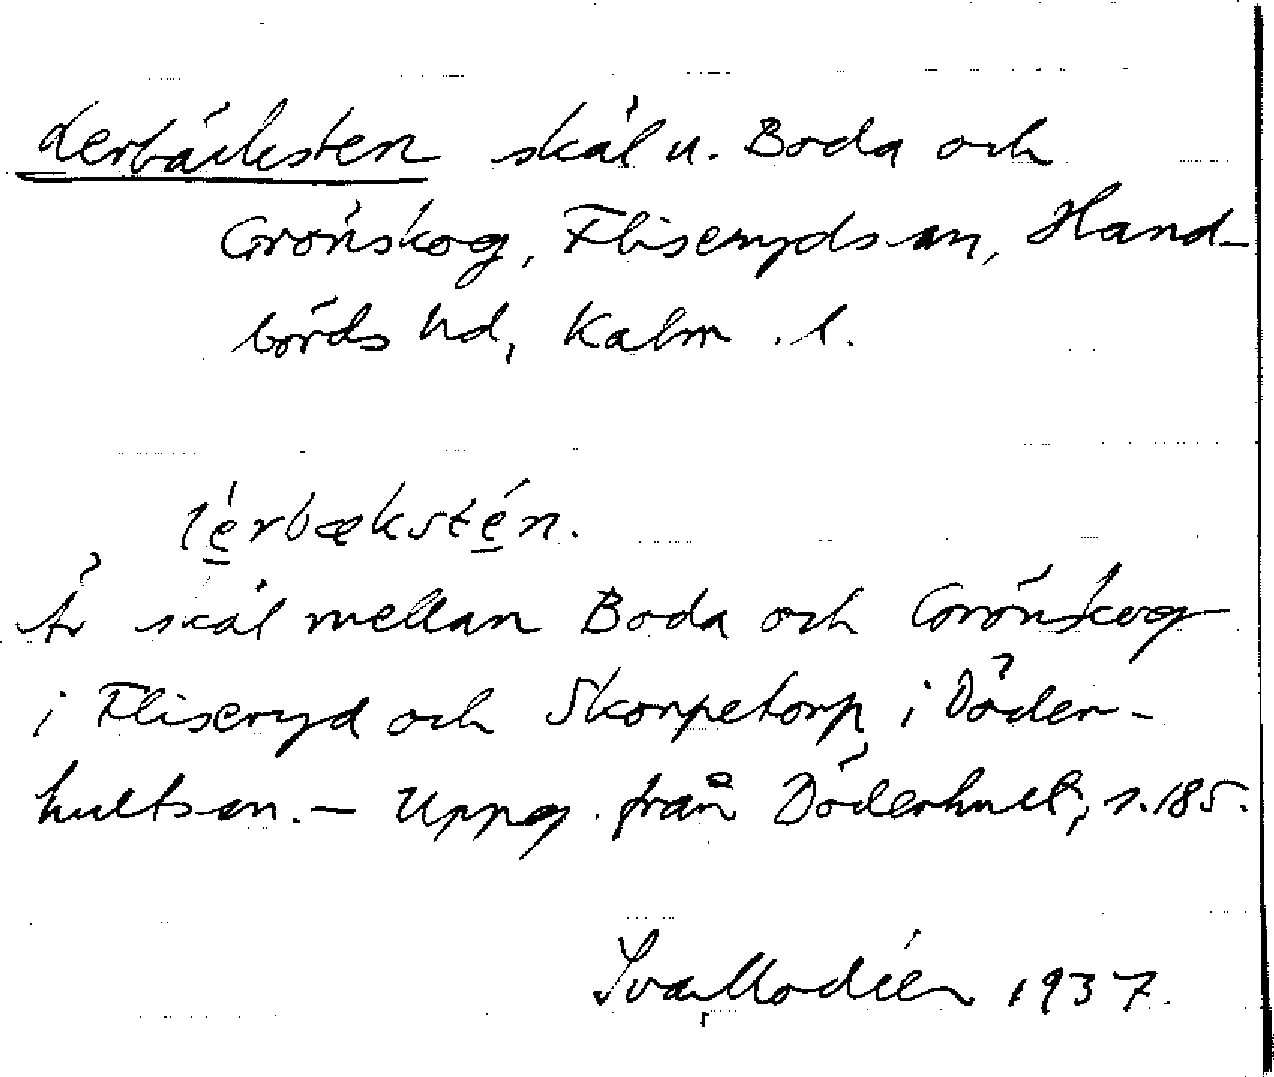 Lerbäcksten skäl u. Boda och
Grönskog, Fliseryds sn, Hand-
börds hd, Kalm. l.
lérbækstén.
Är skäl mellan Boda och Grönskog
i Fliseryd och Skorpetorp i Döder-
hults sn. – Uppg. från Döderhult, s. 185.
Ivar Modéer 1937.